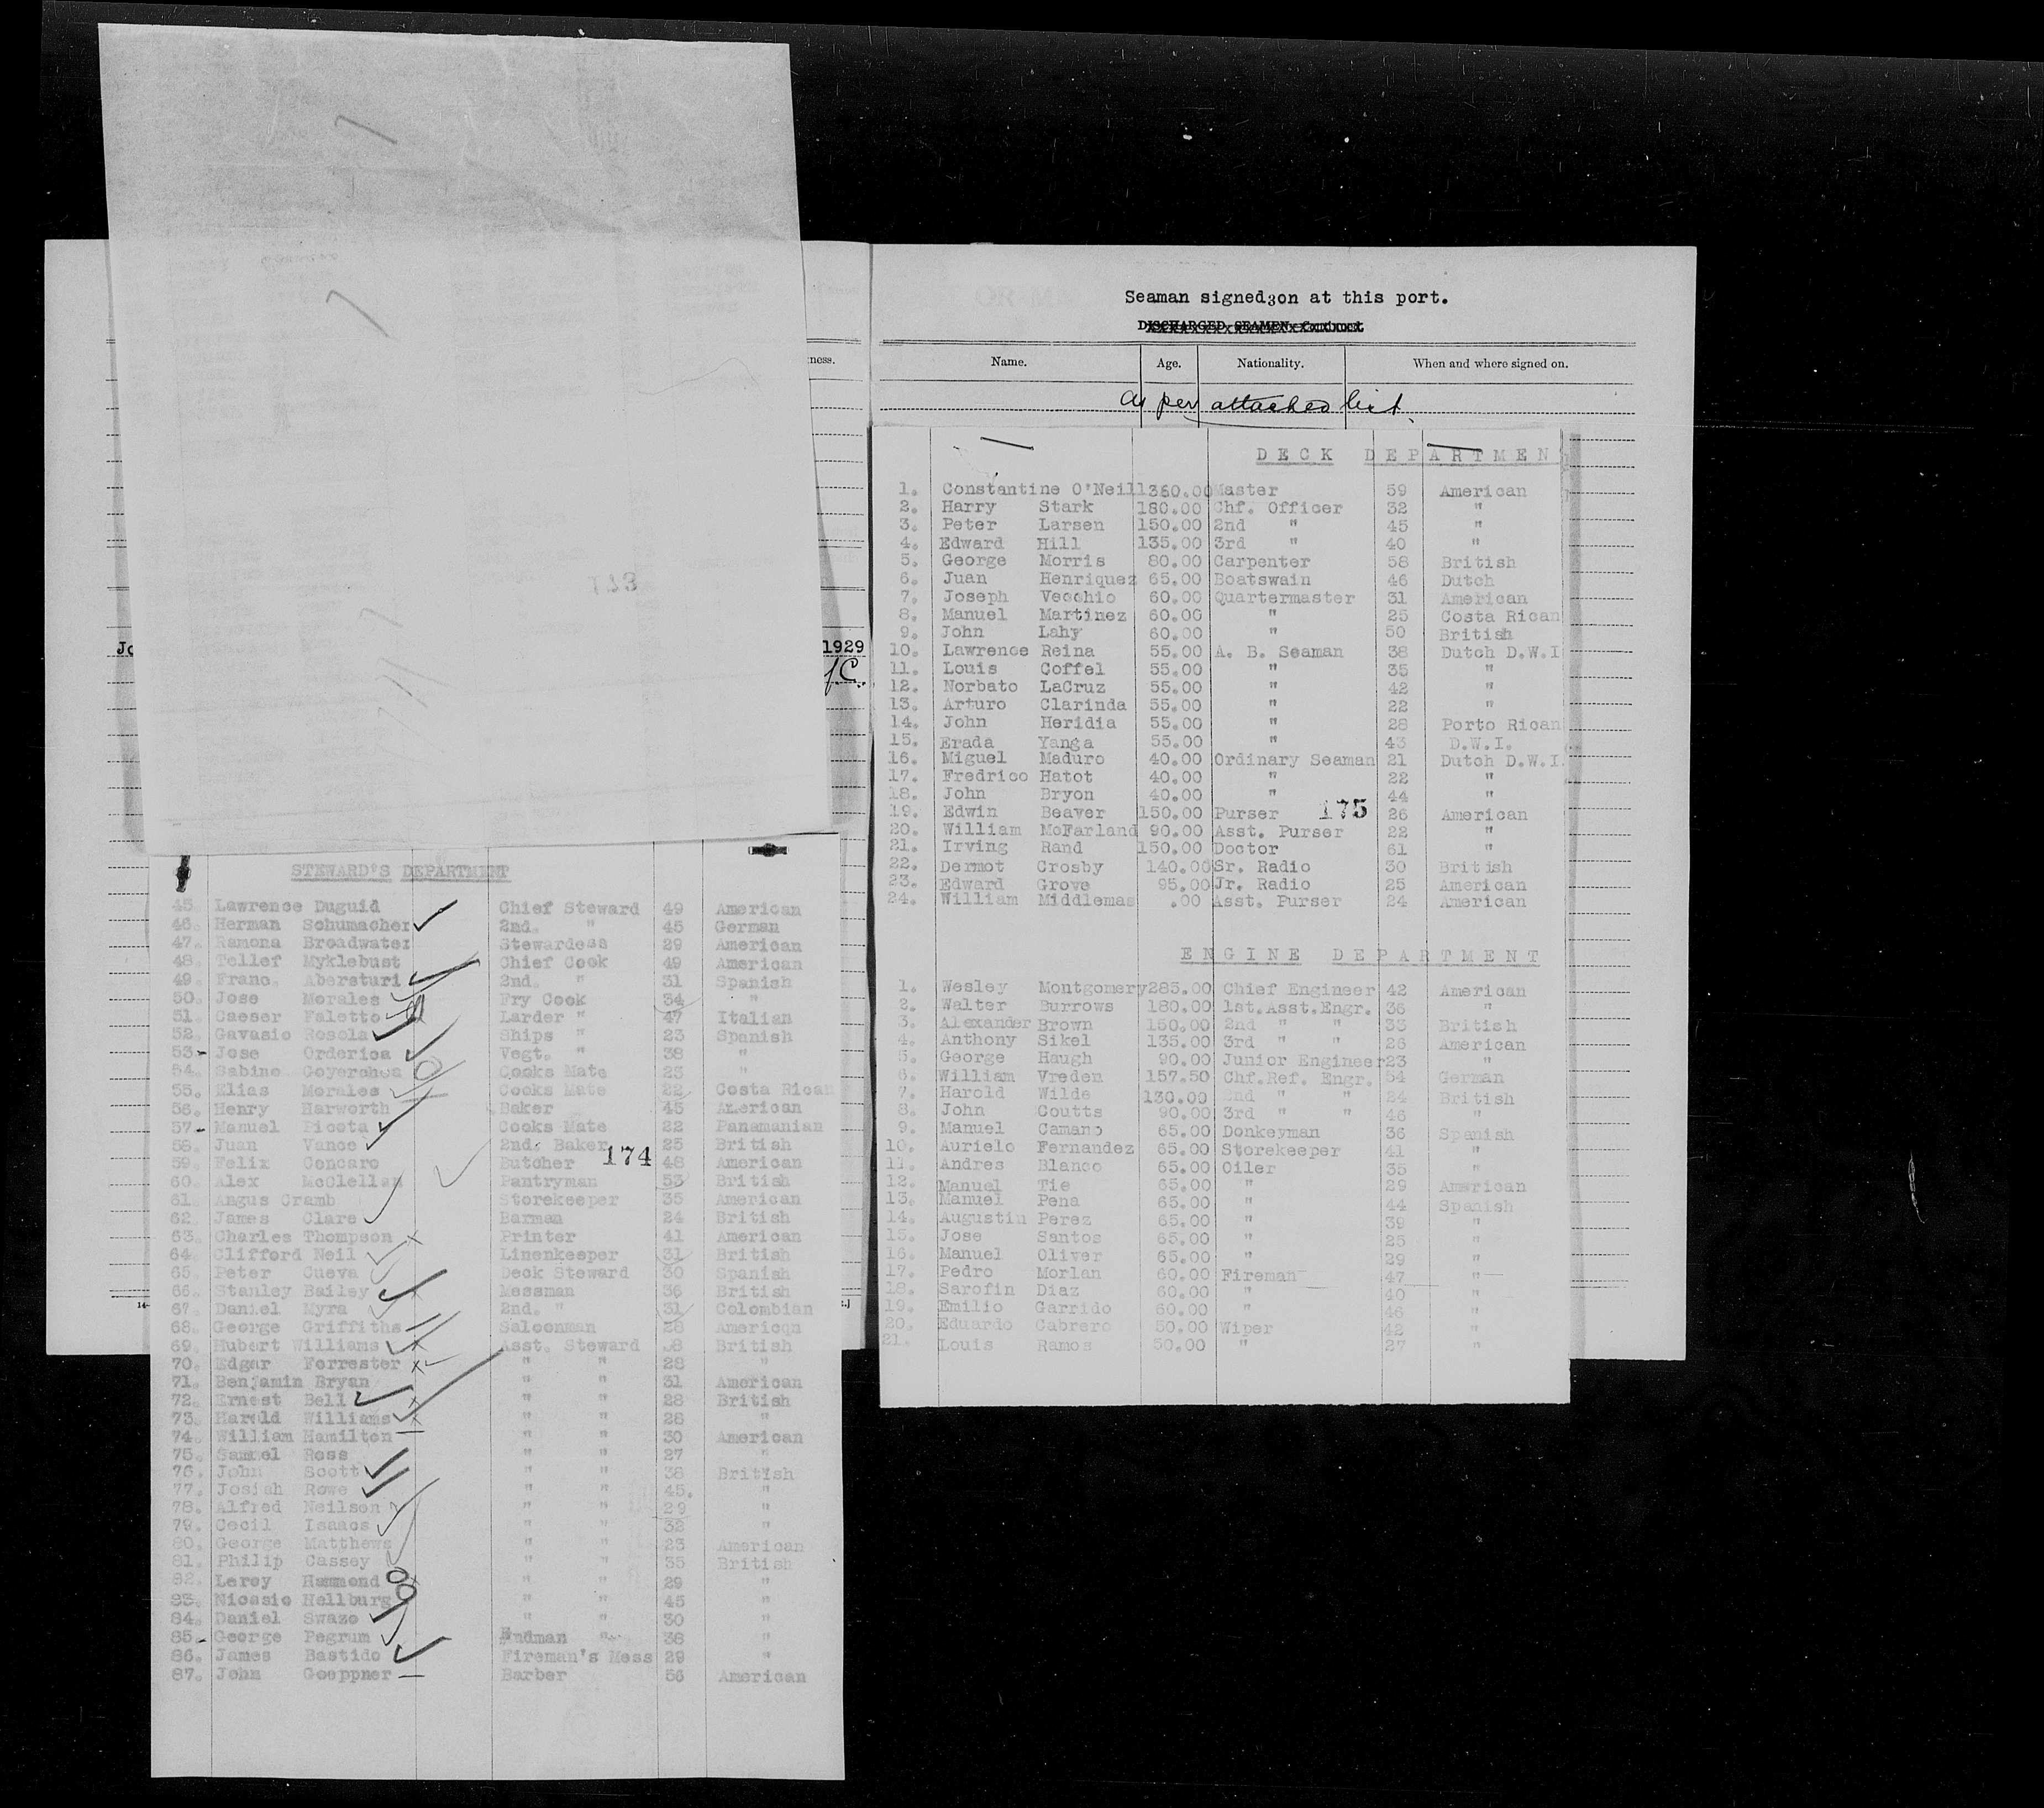 ness.
Jo
1929
J.C.
14-
STEWARD'S DEPARTMENT
45. Lawrence Duguid Chief Steward 49 American
46. Herman Schumacher 2nd. " 45 German
47. Ramona Broadwater Stewardess 29 American
48. Tellef Myklebust Chief Cook 49 American
49. Franc. Abersturi 2nd. " 31 Spanish
50. Jose Morales Fry Cook 34 "
51. Caeser Faletto Larder " 47 Italian
52. Gavasio Rosola Ships " 23 Spanish
53. Jose Orderica Vegt. " 38 "
54. Sabino Goyerchea Cooks Mate 23 "
55. Elias Morales Cooks Mate 22 Costa Rican
56. Henry Harworth Baker 45 American
57. Manuel Picota Cooks Mate 22 Panamanian
58. Juan Vance 2nd. Baker 25 British
174
59. Felix Concaro Butcher 48 American
60. Alex McClellan Pantryman 53 British
61. Angus Cramb Storekeeper 35 American
62. James Clare Barman 24 British
63. Charles Thompson Printer 41 American
64. Clifford Neil Linenkeeper 31 British
65. Peter Cueva Deck Steward 30 Spanish
66. Stanley Bailey Messman 36 British
67. Daniel Myra 2nd. " 31 Colombian
68. George Griffiths Saloonman 28 Americqn
69. Hubert Williams Asst. Steward 8 British
70. Edgar Forrester " " 28 "
71. Benjamin Bryan " " 31 American
72. Ernest Bell " " 28 British
73. Harold Williams " " 26 "
74. William Hamilton " " 30 American
75. Samuel Ross " " 27 "
76. John Scott " " 38 British
77. Josiah Rowe " " 45. "
78. Alfred Neilson " " 29 "
79. Cecil Isaacs " " 32 "
80. George Matthews " " 23 American
81. Philip Cassey " " 35 British
82. Leroy Hammond " " 29 "
83. Nicasio Hellburg " " 45 "
84. Daniel Swazo " " 30 "
85. George Pegrum Endman " 38 "
86. James Bastido Fireman's Mess 29 "
87. John Goeppner Barber 56 American
Seaman signed3on at this port.
DISCHARGED SEAMEN—Continued.
Name. Age. Nationality. When and where signed on.
as per attached list.
DECK DEPARTMEN
1. Constantine O'Neill 360.00 Master 59 American
2. Harry Stark 180.00 Chf. Officer 32 "
3. Peter Larsen 150.00 2nd " 45 "
4. Edward Hill 135.00 3rd " 40 "
5. George Morris 80.00 Carpenter 58 British
6. Juan Henriquez 65.00 Boatswain 46 Dutch
7. Joseph Vecchio 60.00 Quartermaster 31 American
8. Manuel Martinez 60.00 " 25 Costa Rican
9. John Lahy 60.00 " 50 British
10. Lawrence Reina 55.00 A. B. Seaman 38 Dutch D.W.I
11. Louis Coffel 55.00 " 35 "
12. Norbato LaCruz 55.00 " 42 "
13. Arturo Clarinda 55.00 " 22 "
14. John Heridia 55.00 " 28 Porto Rican
15. Erada Yanga 55.00 " 43 D.W.I.
16. Miguel Maduro 40.00 Ordinary Seaman 21 Dutch D.W.I.
17. Fredrico Hatot 40.00 " 22 "
18. John Bryon 40.00 " 44 "
175
19. Edwin Beaver 150.00 Purser 26 American
20. William McFarland 90.00 Asst. Purser 22 "
21. Irving Rand 150.00 Doctor 61 "
22. Dermot Crosby 140.00 Sr. Radio 30 British
23. Edward Grove 95.00 Jr. Radio 25 American
24. William Middlemas .00 Asst. Purser 24 American
ENGINE DEPARTMENT
1. Wesley Montgomery 285.00 Chief Engineer 42 American
2. Walter Burrows 180.00 1st.Asst.Engr. 36 "
3. Alexander Brown 150.00 2nd " " 33 British
4. Anthony Sikel 135.00 3rd " " 26 American
5. George Haugh 90.00 Junior Engineer 23 "
6. William Vreden 157.50 Chf.Ref. Engr. 54 German
7. Harold Wilde 130.00 2nd " " 24 British
8. John Coutts 90.00 3rd " " 46 "
9. Manuel Camano 65.00 Donkeyman 36 Spanish
10. Aurielo Fernandez 65.00 Storekeeper 41 "
11. Andres Blanco 65.00 Oiler 35 "
12. Manuel Tie 65.00 " 29 American
13. Manuel Pena 65.00 " 44 Spanish
14. Augustin Perez 65.00 " 39 "
15. Jose Santos 65.00 " 25 "
16. Manuel Oliver 65.00 " 29 "
17. Pedro Morlan 60.00 Fireman 47 "
18. Sarofin Diaz 60.00 " 40 "
19. Emilio Garrido 60.00 " 46 "
20. Eduardo Cabrero 50.00 Wiper 42 "
21. Louis Ramos 50.00 " 27 "